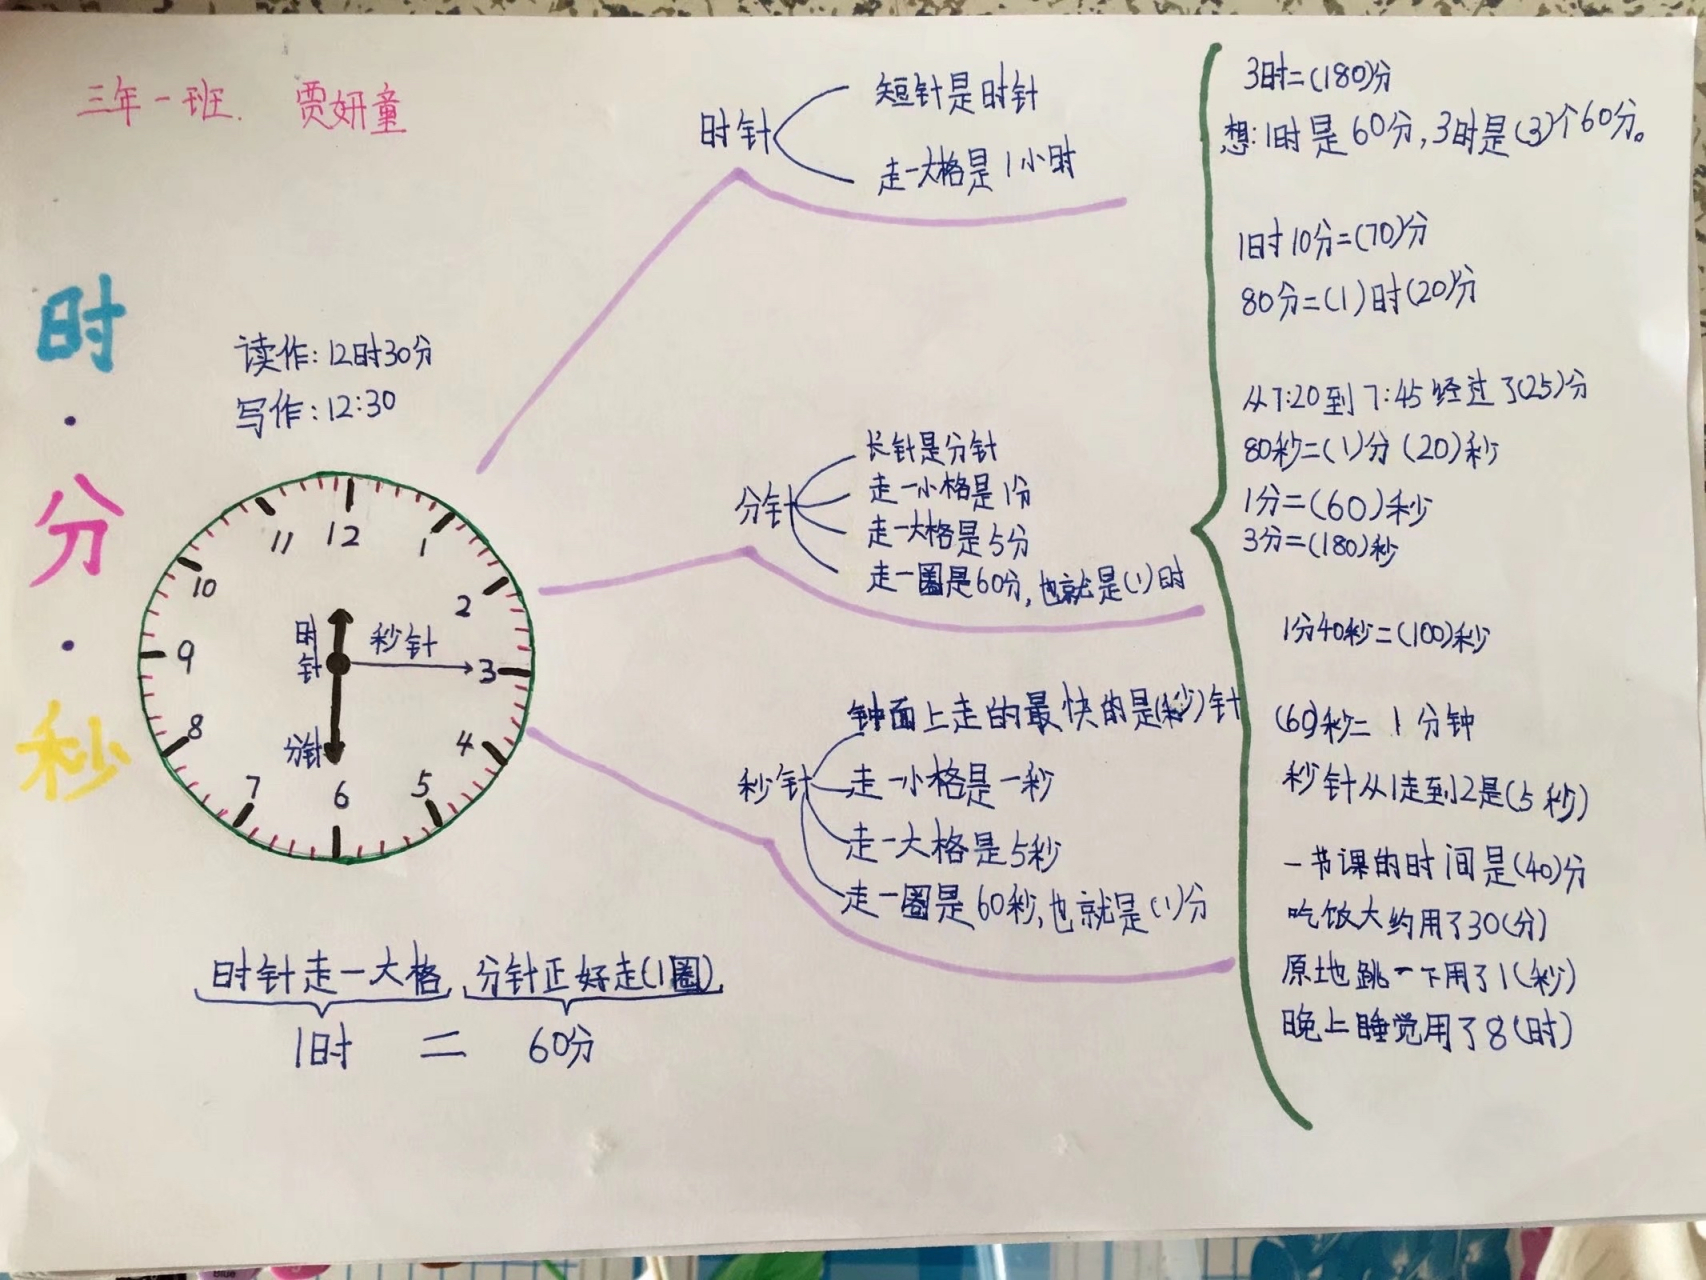 三年一班. 贾妍童
时·分·秒
读作:12时30分
写作:12:30
12
1
2
3
4
5
6
7
8
9
10
11
时针
秒针
分针
时针走一大格,分针正好走(1圈)
1时 = 60分
时针
短针是时针
走一大格是1小时
分针
长针是分针
走一小格是1分
走一大格是5分
走一圈是60分,也就是(1)时
秒针
钟面上走的最快的是(秒)针
走一小格是一秒
走一大格是5秒
走一圈是60秒,也就是(1)分
3时=(180)分
想:1时是60分,3时是(3)个60分。
1时10分=(70)分
80分=(1)时(20)分
从7:20到7:45经过了(25)分
80秒=(1)分(20)秒
1分=(60)秒
3分=(180)秒
1分40秒=(100)秒
(60)秒=1分钟
秒针从1走到2是(5秒)
一节课的时间是(40)分
吃饭大约用了30(分)
原地跳一下用了1(秒)
晚上睡觉用了8(时)